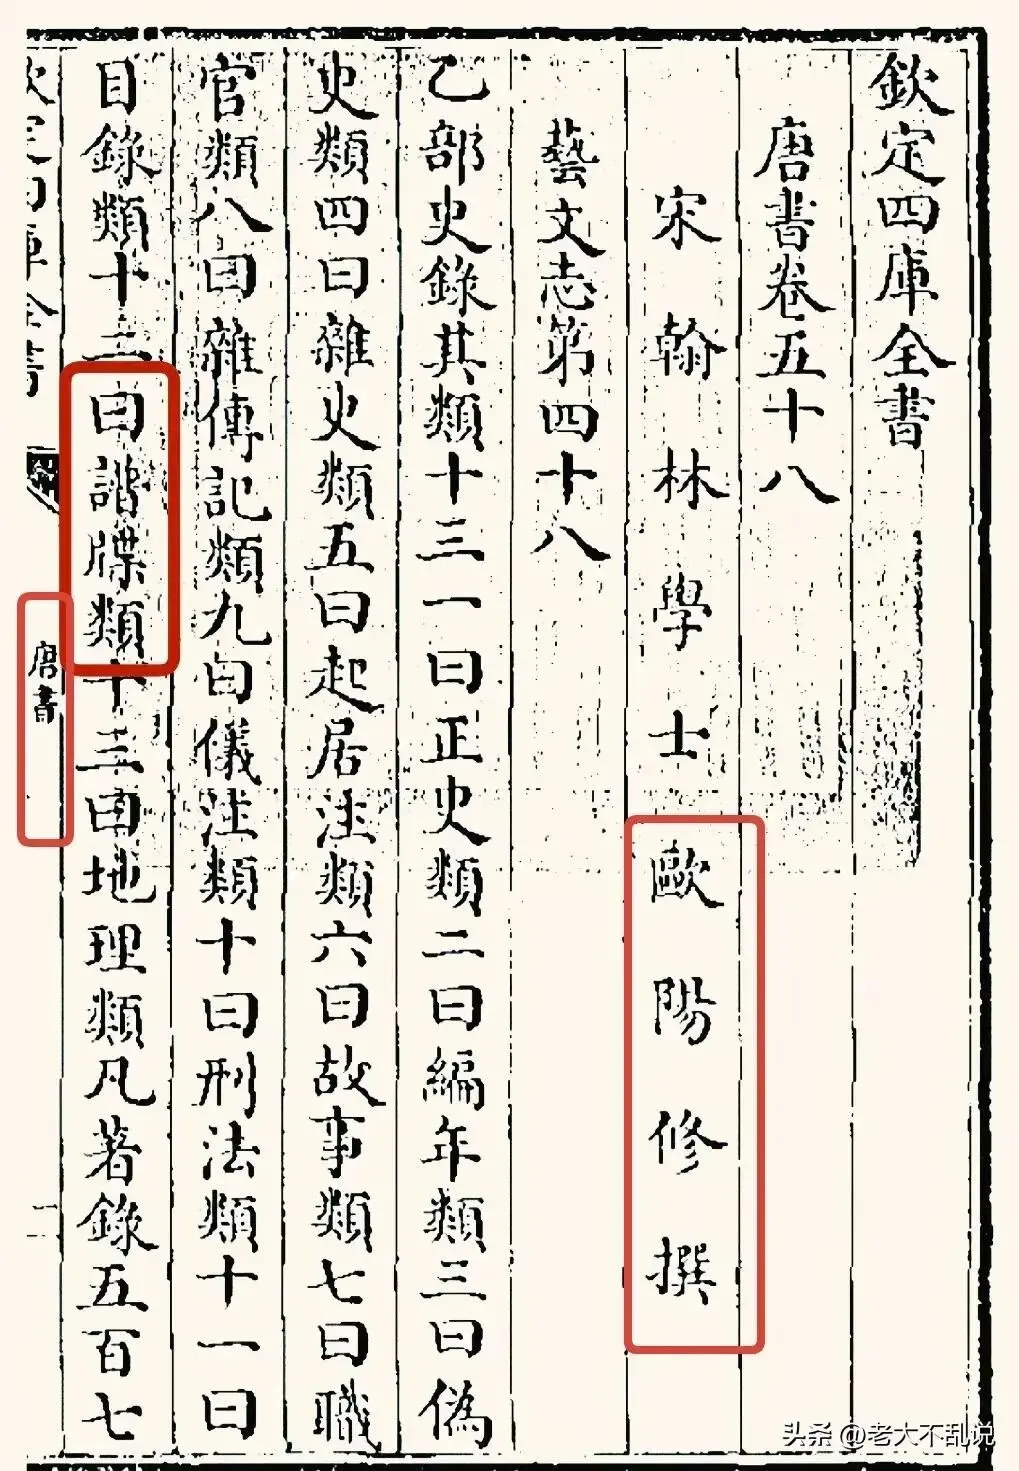 欽定四庫全書
唐書卷五十八
宋翰林學士歐陽修撰
藝文志第四十八
乙部史錄其類十三一曰正史類二曰編年類三曰偽
史類四曰雜史類五曰起居注類六曰故事類七曰職
官類八曰雜傳記類九曰儀注類十曰刑法類十一曰
目錄類十二曰譜牒類十三曰地理類凡著錄五百七
欽定四庫全書
唐書
一
头条 @老大不乱说